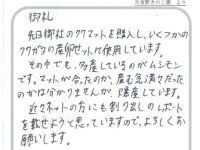 月夜野きのこ園 より
御礼
先日御社のククマットを購入し、いくつかの
クワガタの産卵セットに使用しています。
その中でも、多産しているのがムシモン
です。マットが合ったのか、産む気満々だった
のかは分かりませんが、爆産しています。
近々ネットの方にも割り出しのレポート
を載せようと思っていますので、よろしくお
願いします。